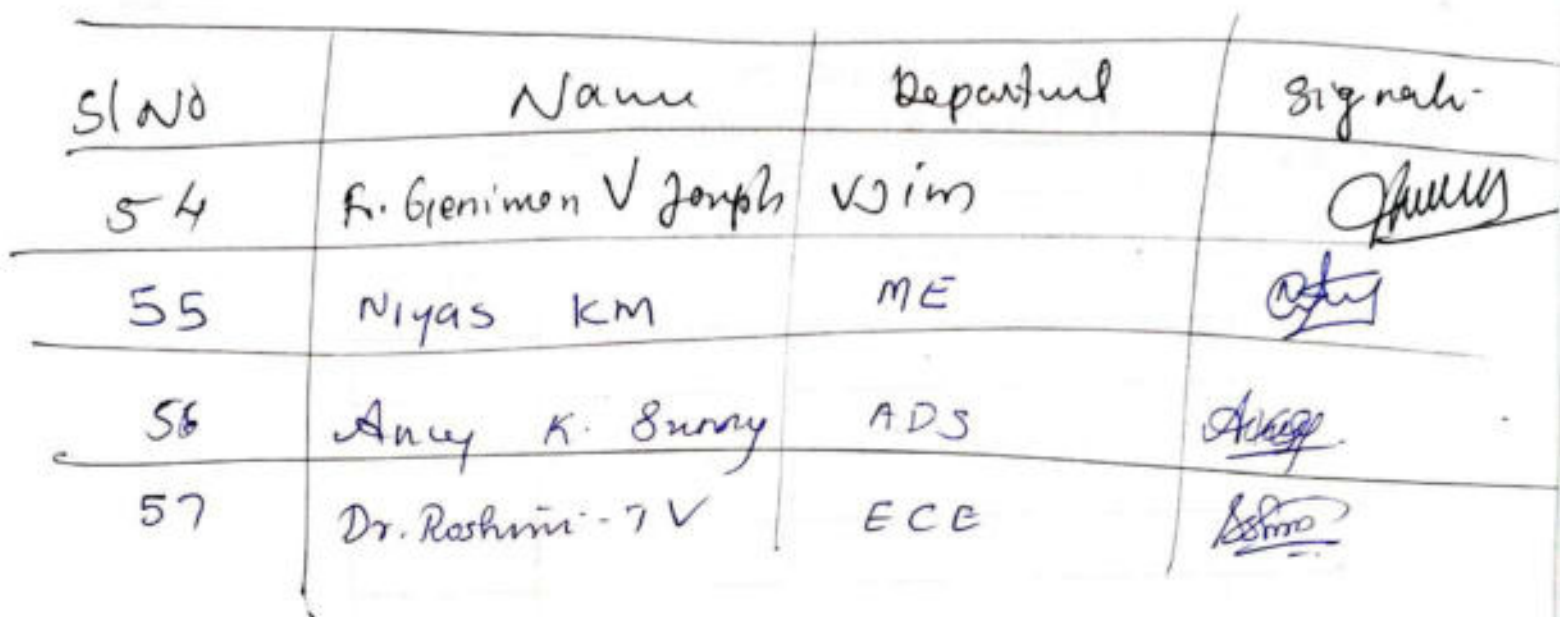 Sl No Name Department Signature
54 Fr. Gienimon V Joseph VJIM
55 Niyas KM ME
56 Ancy K. Sunny ADS
57 Dr. Roshini T V ECE